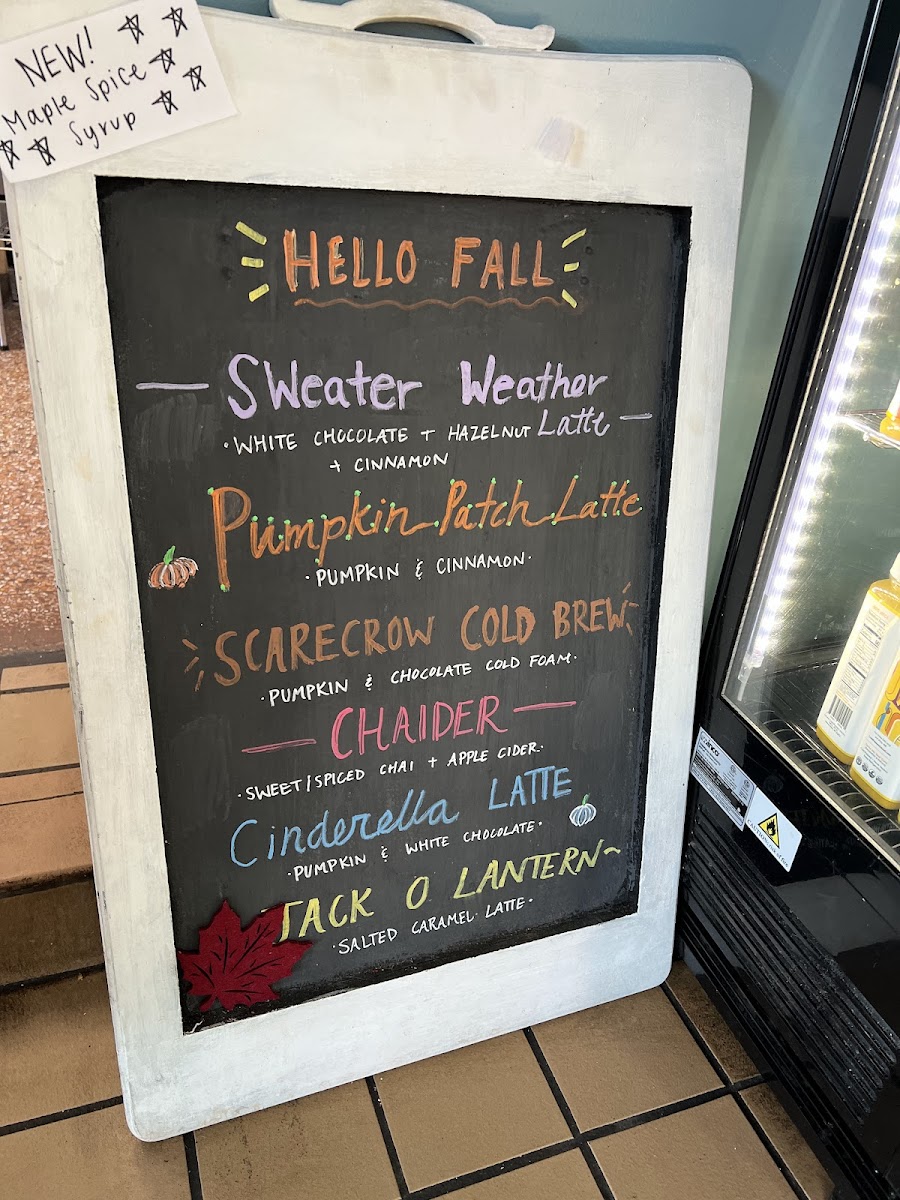 NEW!
Maple Spice
Syrup
HELLO FALL
Sweater Weather
Latte
• WHITE CHOCOLATE + HAZELNUT
+ CINNAMON
Pumpkin Patch Latte
• PUMPKIN & CINNAMON •
SCARECROW COLD BREW
• PUMPKIN & CHOCOLATE COLD FOAM •
CHAIDER
• SWEET/SPICED CHAI + APPLE CIDER •
Cinderella LATTE
• PUMPKIN & WHITE CHOCOLATE •
JACK O LANTERN~
• SALTED CARAMEL LATTE •
CAUTION